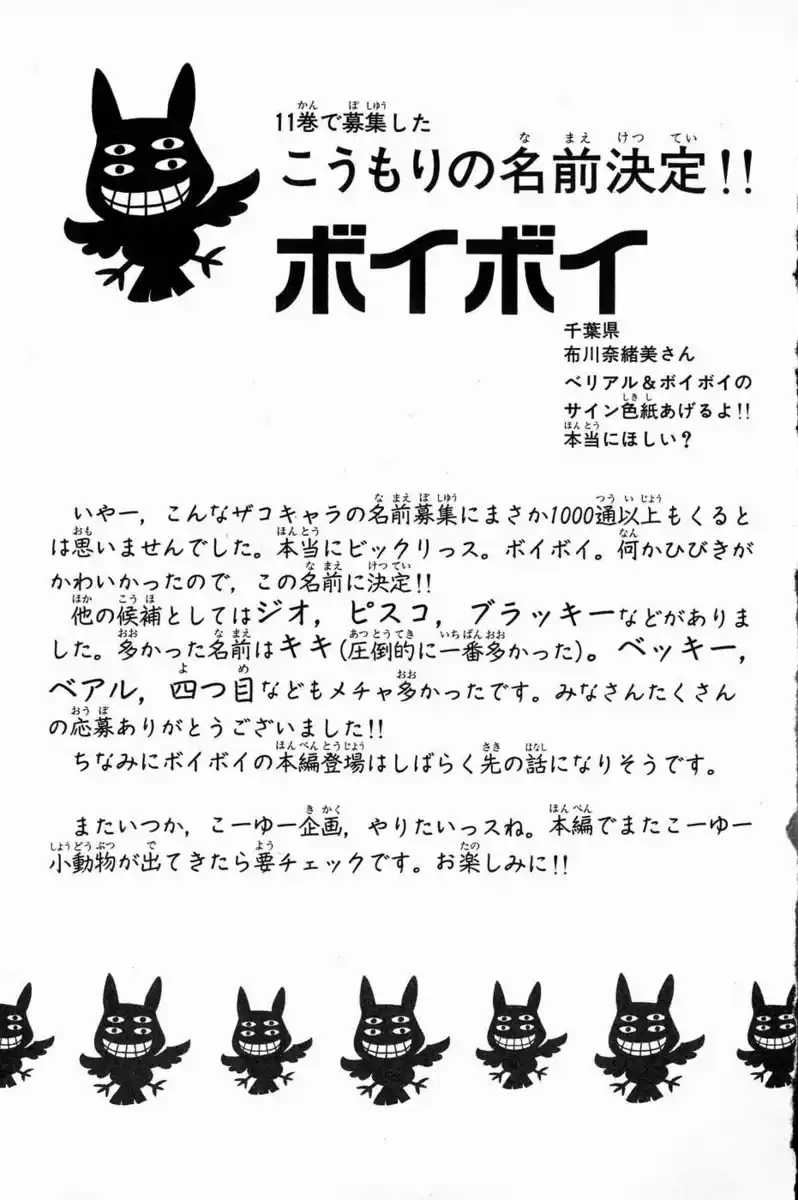 11巻で募集した
こうもりの名前決定!!
ボイボイ
千葉県
布川奈緒美さん
ベリアル&ボイボイの
サイン色紙あげるよ!!
本当にほしい?
いやー,こんなザコキャラの名前募集にまさか1000通以上もくると
は思いませんでした。本当にビックリっス。ボイボイ。何かひびきが
かわいかったので,この名前に決定!!
他の候補としてはジオ,ピスコ,ブラッキーなどがありま
した。多かった名前はキキ(圧倒的に一番多かった)。ベッキー,
ベアル,四つ目などもメチャ多かったです。みなさんたくさん
の応募ありがとうございました!!
ちなみにボイボイの本編登場はしばらく先の話になりそうです。
またいつか,こーゆー企画,やりたいっスね。本編でまたこーゆー
小動物が出てきたら要チェックです。お楽しみに!!